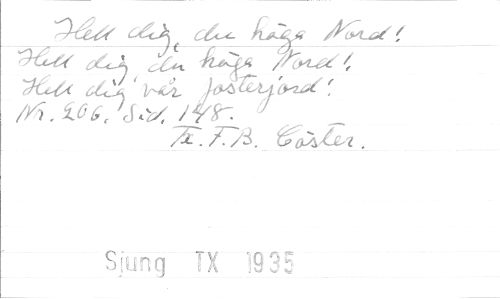 Hell dig, du höga Nord!
Hell dig, du höga Nord!,
Hell dig, vår fosterjord!
Nr. 206, Sid. 148.
F.B. Cöster.
Sjung TX 1935